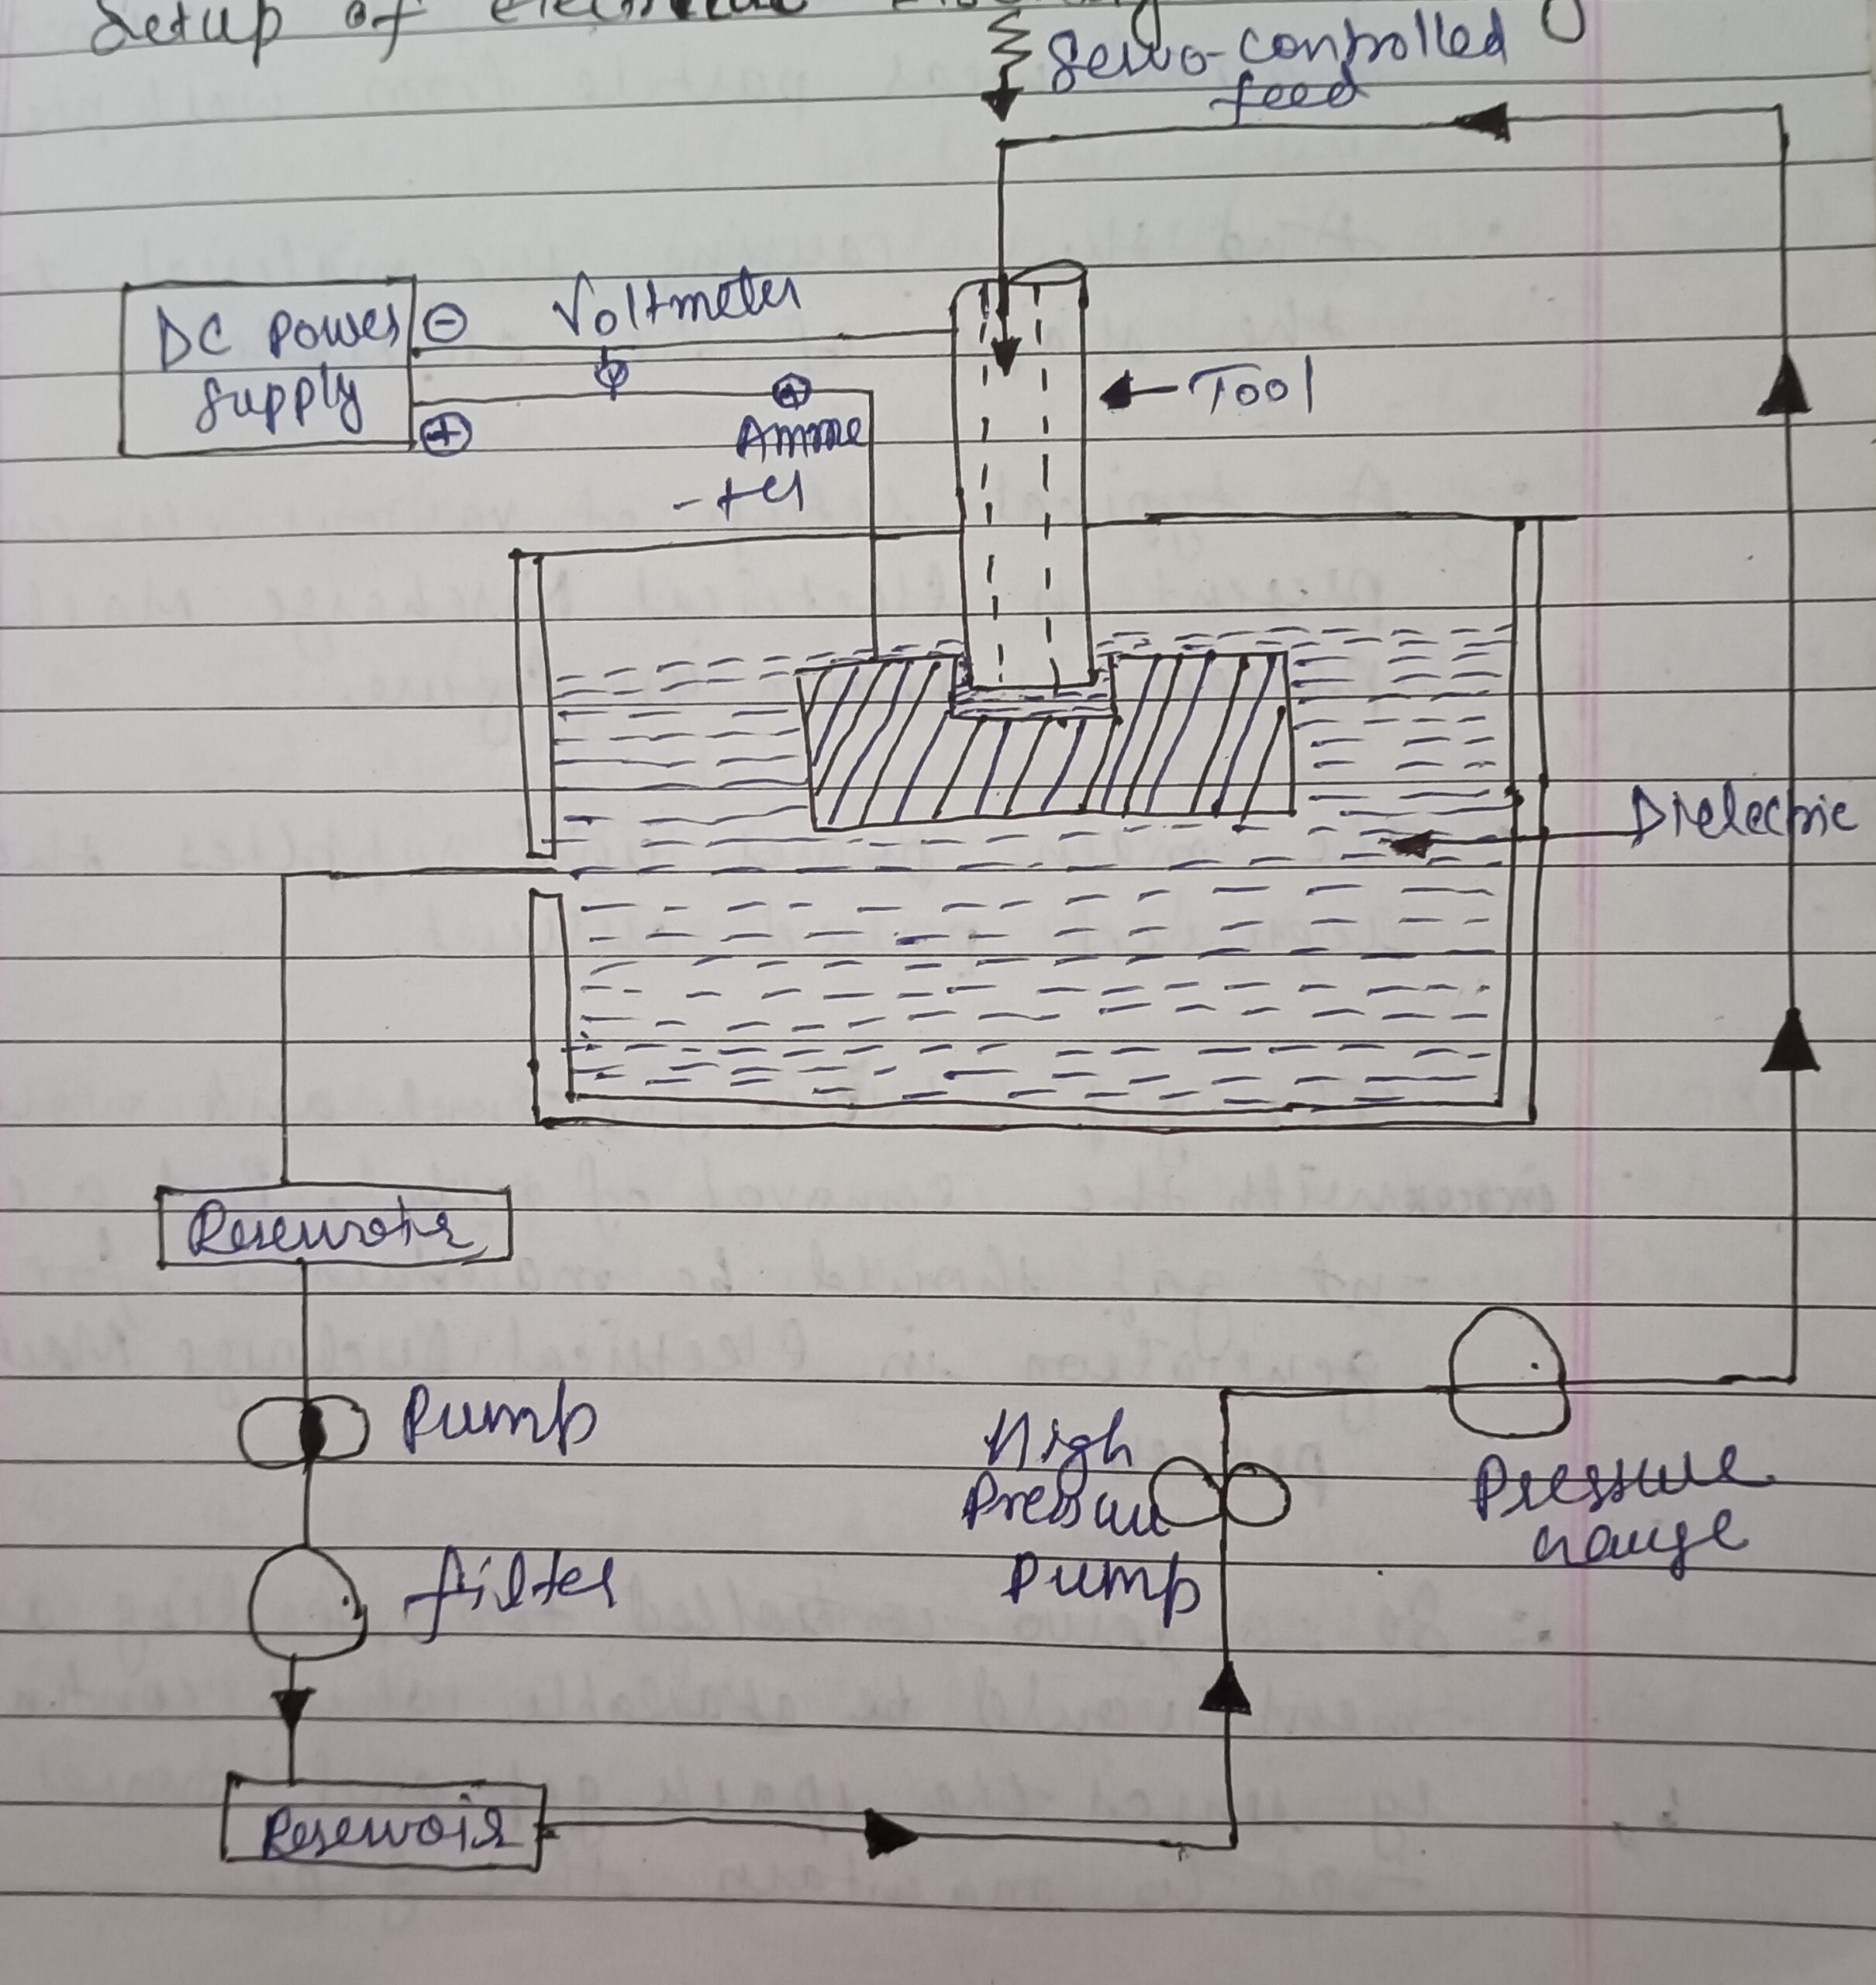 Setup of electrical
Servo-controlled
feed
DC power
supply
⊖
⊕
Voltmeter
V
A
Amme
-ter
← Tool
Dielectric
Reservoir
Pump
filter
Reservoir
High
Pressure
Pump
Pressure
Gauge